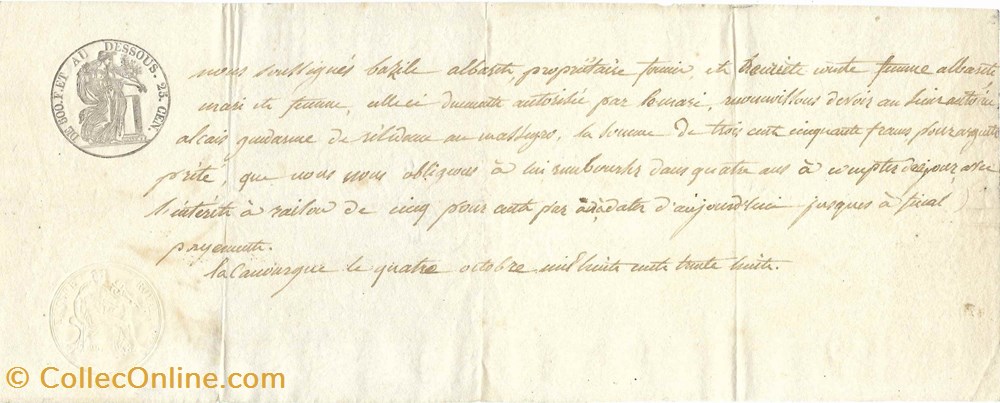 DE 500 F. ET AU DESSOUS. 25 CEN.
nous soussignés bazile albaret propriétaire fermier, et henriete femme albarete
marie et femme, elle ci dument autorisée par son mari, reconnaissons devoir au sieur antoine
gendarme de résidence au massegros, la somme de trois cent cinquante francs pour argent
prété, que nous nous obligeons à lui rembourser dans quatre ans à compter de ce jour avec
l'intérêt à raison de cinq pour cent par an à dater d'aujourd'hui jusques à final
payement.
la Canourgue le quatre octobre mil huit cent trente huit.
© CollecOnline.com